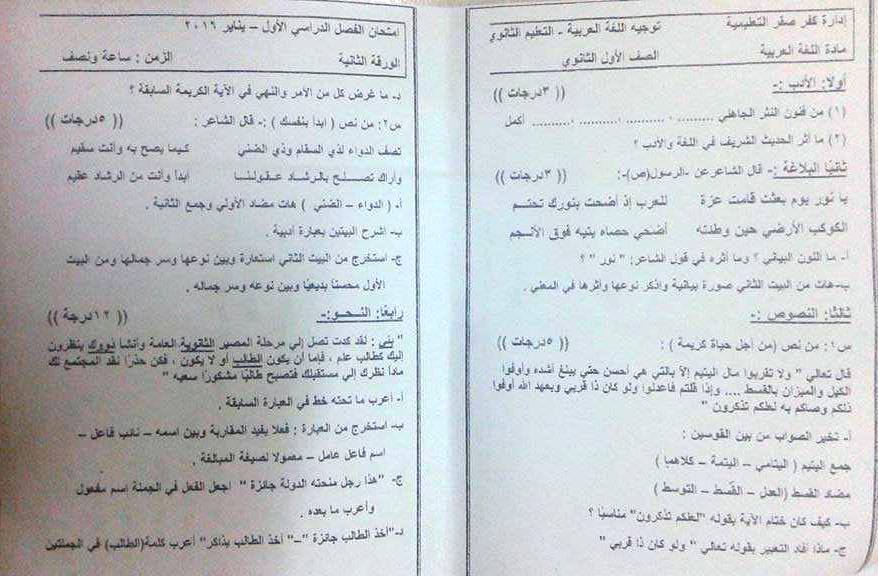 إدارة كفر صقر التعليمية توجيه اللغة العربية - التعليم الثانوي
مادة اللغة العربية الصف الأول الثانوي
أولا: الأدب :- (( ٣درجات ))
(١) من فنون النثر الجاهلي ......... ، ......... ، ......... ، ......... أكمل
(٢) ما أثر الحديث الشريف في اللغة والأدب ؟
ثانيًا البلاغة :- قال الشاعر عن -الرسول(ص)-: (( ٣درجات ))
يا نور يوم بعثت قامت عزة للعرب إذ أضحت بنورك تحتـــم
الكوكب الأرضي حين وطئته أضحي حصاه يتيه فوق الأنــجم
أ- ما اللون البياني ؟ وما أثره في قول الشاعر: " نور " ؟
ب- هات من البيت الثاني صورة بيانية واذكر نوعها وأثرها في المعني .
ثالثًا: النصوص :-
س١: من نص (من أجل حياة كريمة ) : (( ٥درجات ))
قال تعالي " ولا تقربوا مال اليتيم إلاّ بالتي هي أحسن حتي يبلغ أشده وأوفوا
الكيل والميزان بالقسط .... وإذا قلتم فاعدلوا ولو كان ذا قربي وبعهد الله أوفوا
ذلكم وصاكم به لعلكم تذكرون "
أ- تخير الصواب من بين القوسين :
جمع اليتيم ( اليتامي - اليتمة - كلاهما )
مضاد القسط (العدل - القَسط - التوسط )
ب- كيف كان ختام الآية بقوله "لعلكم تذكرون" مناسبًا ؟
ج- ماذا أفاد التعبير بقوله تعالي " ولو كان ذا قربي "
امتحان الفصل الدراسي الأول – يناير ٢٠١٦
الورقة الثانية الزمن : ساعة ونصف
د- ما غرض كل من الأمر والنهي في الآية الكريمة السابقة ؟
س٢: من نص ( ابدأ بنفسك ) :- قال الشاعر : (( ٥درجات ))
تصف الدواء لذي السقام وذي الضني كيما يصح به وأنت سقيم
وأراك تصـــلح بالرشاد عـقـولـنـا أبدأ وأنت من الرشاد عقيم
أ- ( الدواء – الضني ) هات مضاد الأولي وجمع الثانية .
ب- اشرح البيتين بعبارة أدبية .
ج- استخرج من البيت الثاني استعارة وبين نوعها وسر جمالها ومن البيت
الأول محسنًا بديعيًا وبين نوعه وسر جماله .
رابعًا: النــحــو:- (( ١٢درجة ))
" بني : لقد كدت تصل إلي مرحلة المصير الثانوية العامة وأنشأ ذووك ينظرون
إليك كطالب علم ، فإما أن يكون الطالب أو لا يكون ، فكن حذرًا نقد المجتمع لك
مادًا نظرك إلي مستقبلك فتصبح طالبًا مشكورًا سعيه "
أ- أعرب ما تحته خط في العبارة السابقة .
ب- استخرج من العبارة : فعلا يفيد المقاربة وبين اسمه – نائب فاعل –
اسم فاعل عامل – معمولا لصيغة المبالغة .
ج- "هذا رجل منحته الدولة جائزة " اجعل الفعل في الجملة اسم مفعول
وأعرب ما بعده .
د-"أخذ الطالب جائزة "-" أخذ الطالب يذاكر" أعرب كلمة(الطالب) في الجملتين